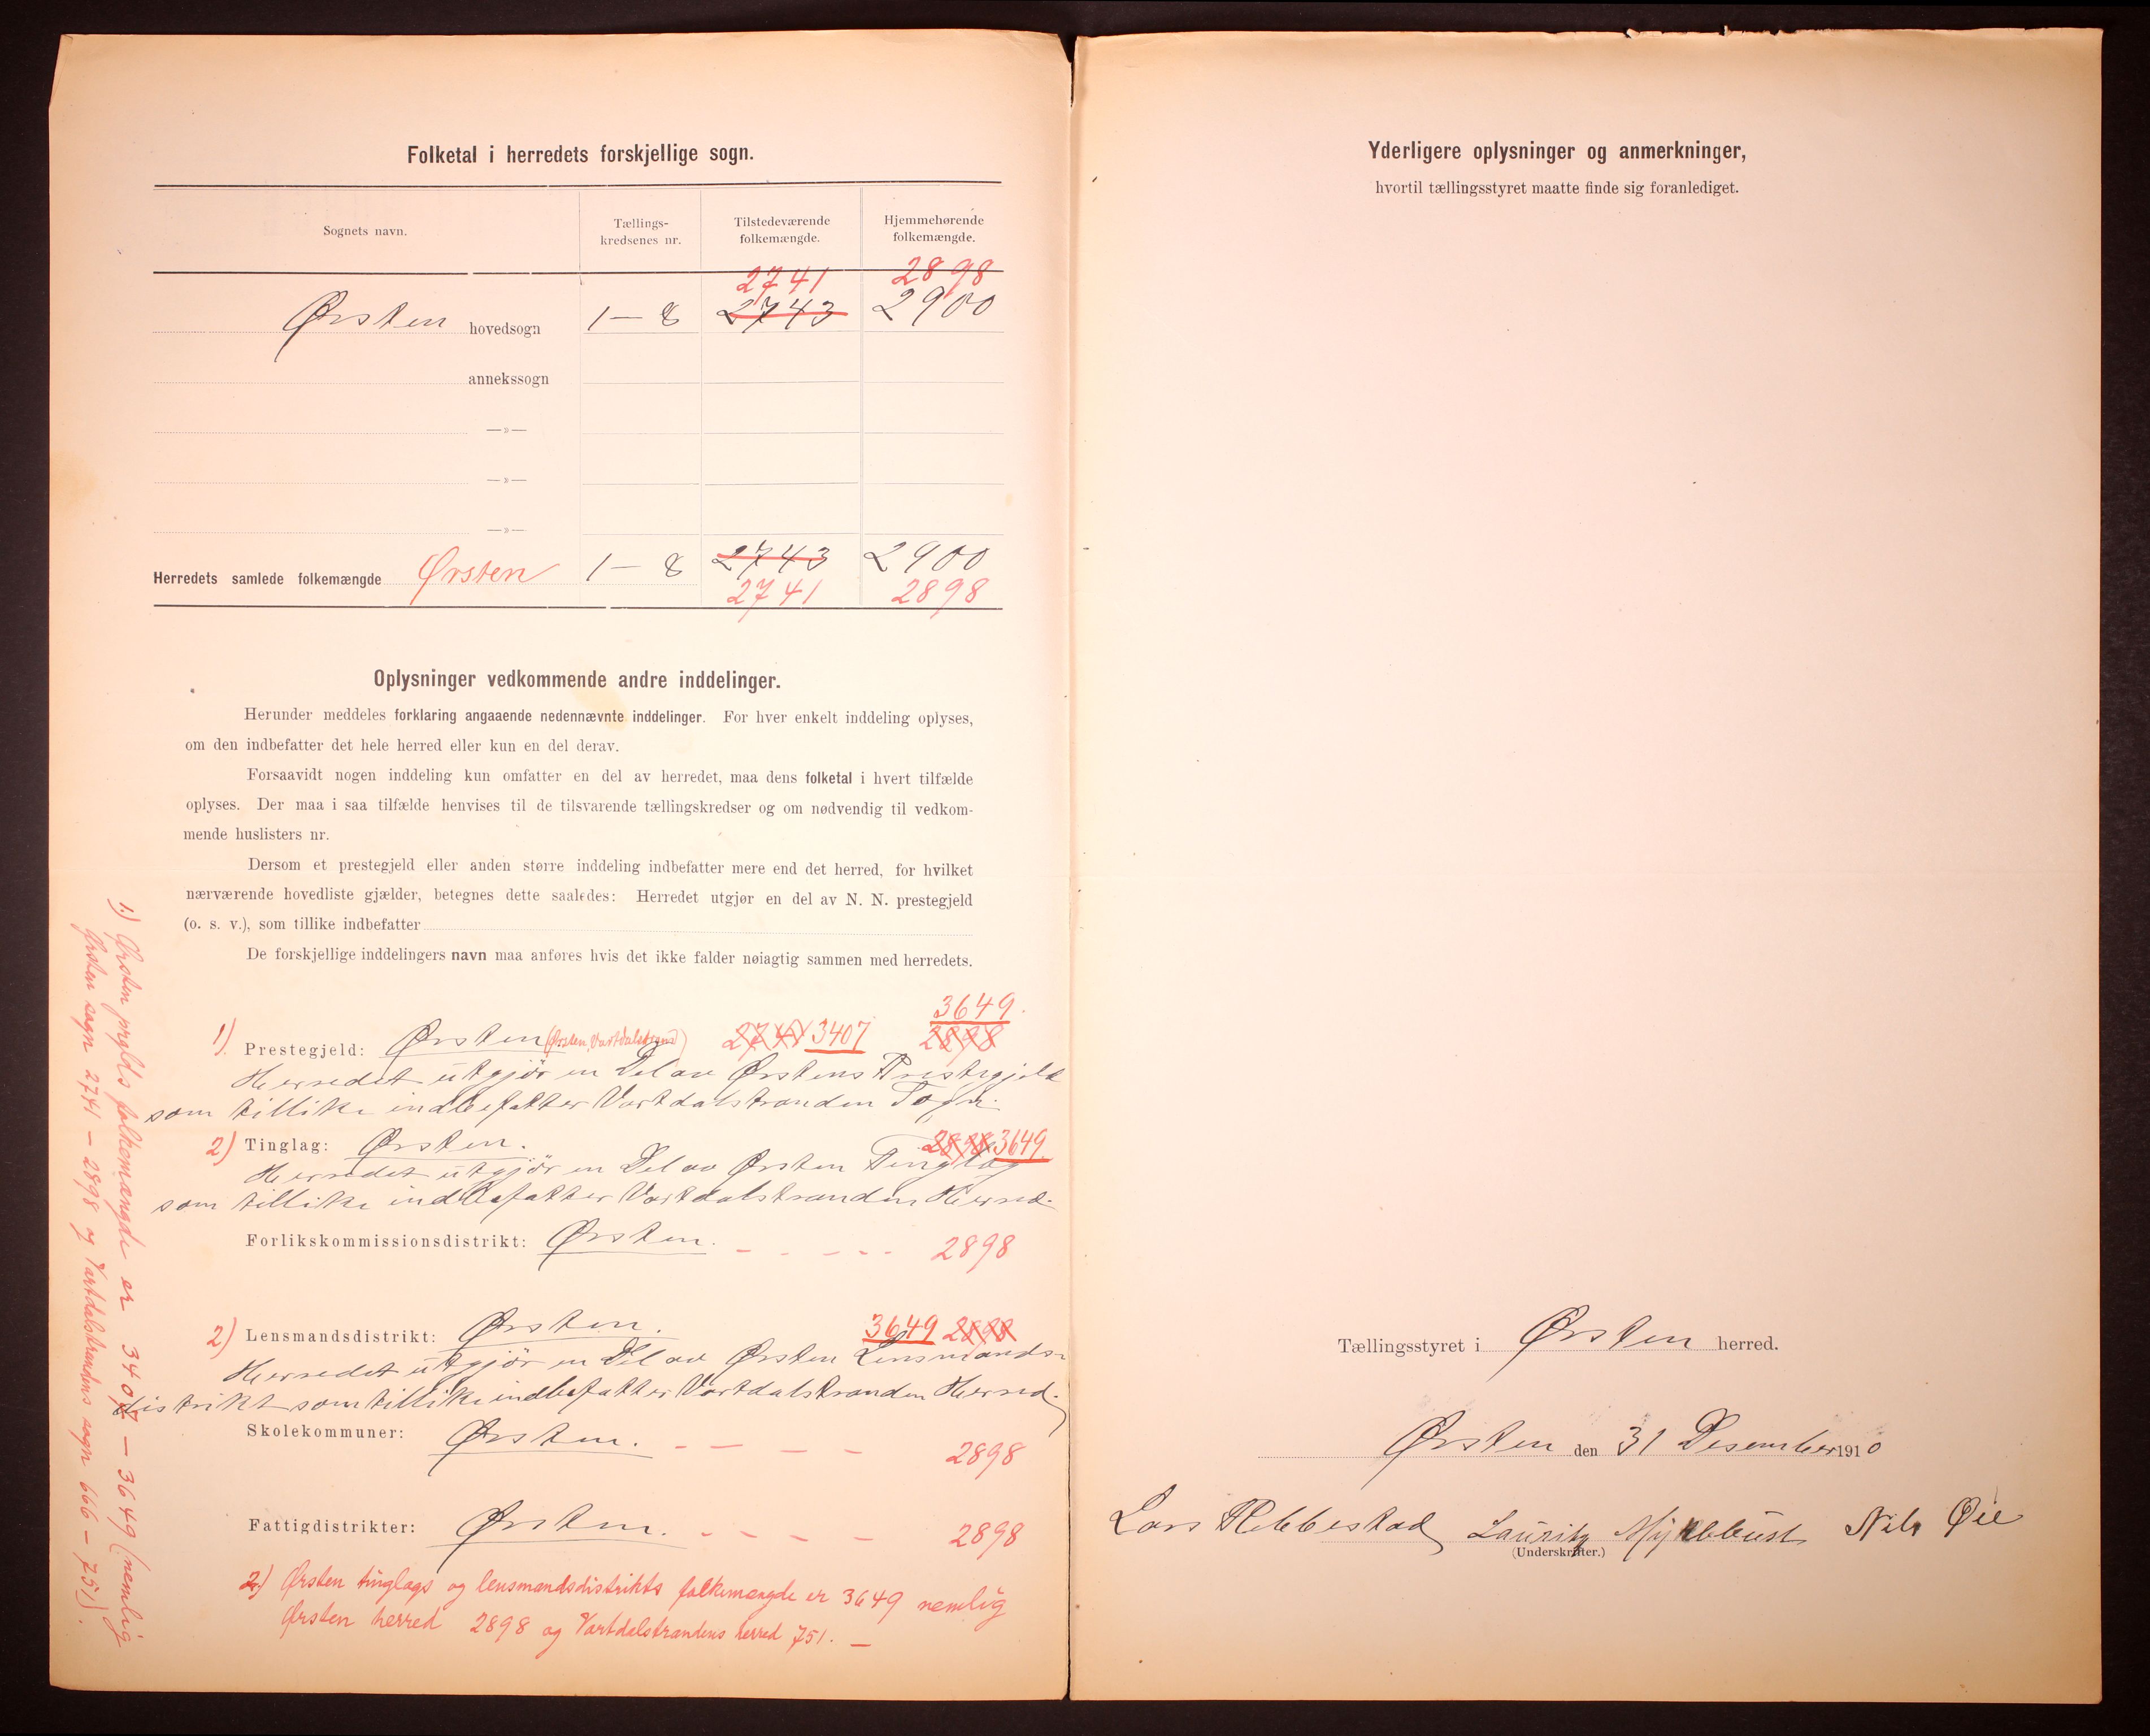 Folketal i herredets forskjellige sogn.
Sognets navn.
Tællings-
kredsenes nr.
Tilstedeværende
folkemængde.
Hjemmehørende
folkemængde.
2741 2898
Ørsten hovedsogn 1-8 2743 2900
annekssogn
—»—
—»—
—»—
Herredets samlede folkemængde Ørsten 1-8 2743 2900
2741 2898
Oplysninger vedkommende andre inddelinger.
Herunder meddeles forklaring angaaende nedennævnte inddelinger. For hver enkelt inddeling oplyses,
om den indbefatter det hele herred eller kun en del derav.
Forsaavidt nogen inddeling kun omfatter en del av herredet, maa dens folketal i hvert tilfælde
oplyses. Der maa i saa tilfælde henvises til de tilsvarende tællingskredser og om nødvendig til vedkom-
mende huslisters nr.
Dersom et prestegjeld eller anden større inddeling indbefatter mere end det herred, for hvilket
nærværende hovedliste gjælder, betegnes dette saaledes: Herredet utgjør en del av N. N. prestegjeld
(o. s. v.), som tillike indbefatter
De forskjellige inddelingers navn maa anføres hvis det ikke falder nøiagtig sammen med herredets.
3649.
1) Prestegjeld: Ørsten (Ørsten, Vartdalstrand) 2741 3407 2898
Herredet utgjör en Del av Ørstens Prestegjeld
som tillike indbefatter Vartdalstranden Sogn.
2) Tinglag: Ørsten. 2898 3649
Herredet utgjör en Del av Ørsten Tinglag
som tillike indbefatter Vartdalstranden Herred.
Forlikskommissionsdistrikt: Ørsten. - - - - - 2898
2) Lensmandsdistrikt: Ørsten. 3649 2898
Herredet utgjör en Del av Ørsten Lensmands-
distrikt som tillike indbefatter Vartdalstranden Herred.
Skolekommuner: Ørsten. - - - - 2898
Fattigdistrikter: Ørsten. - - - - 2898
2) Ørsten tinglags og lensmandsdistrikts folkemængde er 3649 nemlig
Ørsten herred 2898 og Vartdalstrandens herred 751. —
1.) Ørsten prgldts folkemængde er 3407 - 3649 (nemlig
Ørsten sogn 2741 - 2898 og Vartdalstrandens sogn 666 - 751).
Yderligere oplysninger og anmerkninger,
hvortil tællingsstyret maatte finde sig foranlediget.
Tællingsstyret i Ørsten herred.
Ørsten den 31 Desember 1910
Lars Rebbestad Lauritz Myklebust Nils Øie
(Underskrifter.)